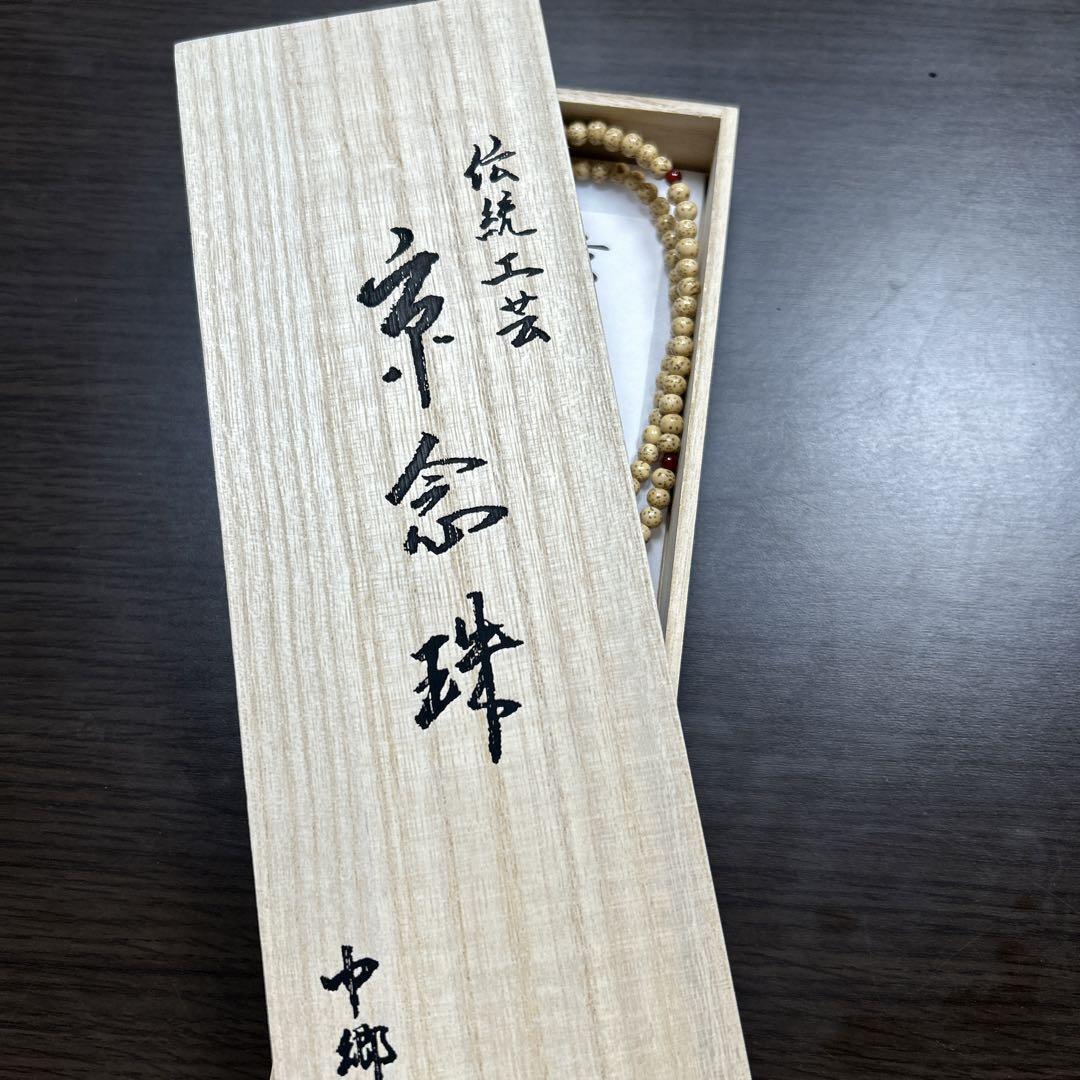 伝統工芸
京念珠
中郷